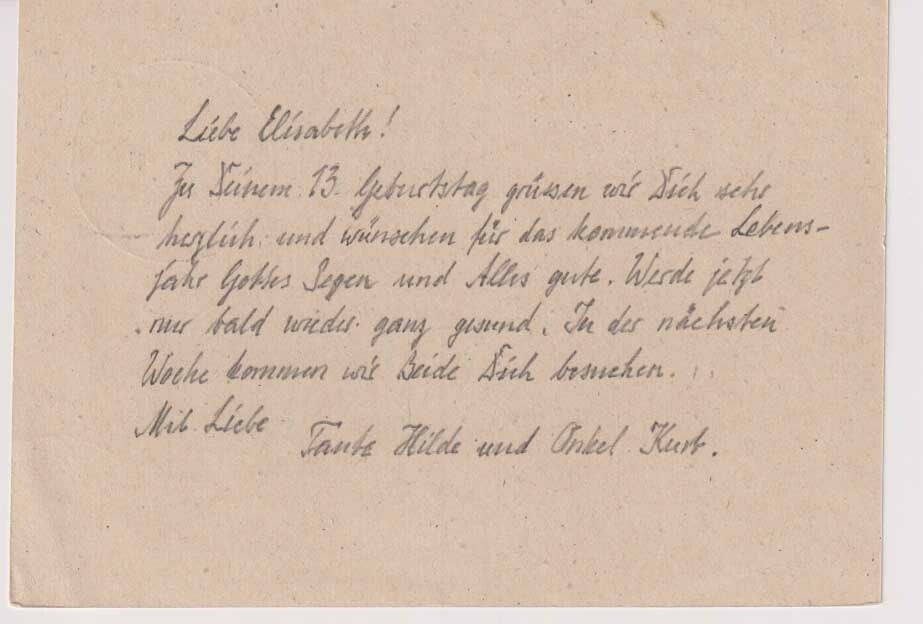 Liebe Elisabeth!
Zu Deinem 13. Geburtstag grüssen wir Dich sehr
herzlich und wünschen für das kommende Lebens-
jahr Gottes Segen und Alles gute. Werde jetzt
nur bald wieder ganz gesund. In der nächsten
Woche kommen wir Beide Dich besuchen.
Mit Liebe
Tante Hilde und Onkel Kurt.